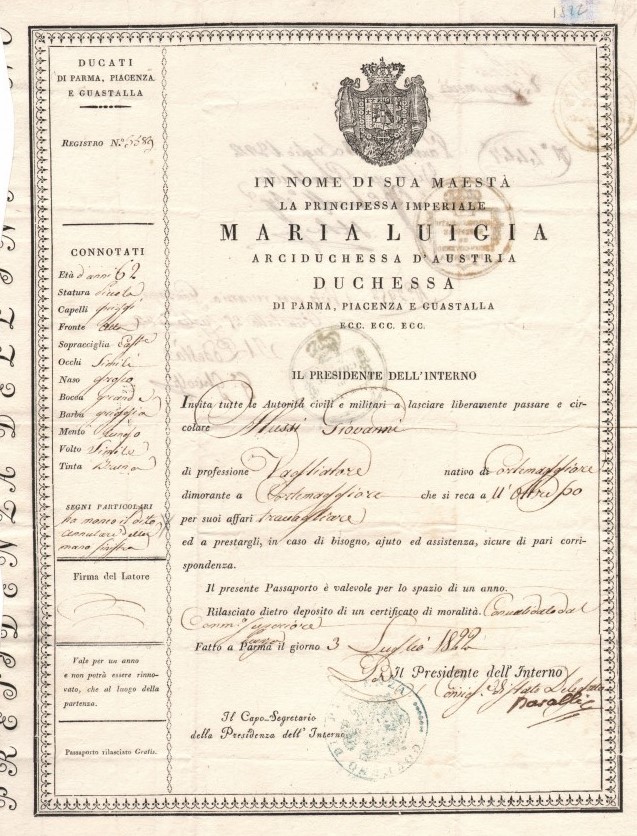 1822
PRESIDENZA DELL'INTERNO
DUCATI
DI PARMA, PIACENZA
E GUASTALLA
REGISTRO N.º
CONNOTATI
Età d'anni 62
Statura Piccola
Capelli grigi
Fronte alta
Sopracciglia
Occhi Simili
Naso grosso
Bocca grande
Barba grigia
Mento lungo
Volto Simile
Tinta bruna
SEGNI PARTICOLARI
ha meno il dito
annulare della
mano sinistra
Firma del Latore
Vale per un anno
e non potrà essere rinno-
vato, che al luogo della
partenza.
Passaporto rilasciato Gratis.
IN NOME DI SUA MAESTÀ
LA PRINCIPESSA IMPERIALE
MARIA LUIGIA
ARCIDUCHESSA D'AUSTRIA
DUCHESSA
DI PARMA, PIACENZA E GUASTALLA
ECC. ECC. ECC.
IL PRESIDENTE DELL'INTERNO
Invita tutte le Autorità civili e militari a lasciare liberamente passare e cir-
colare Alussi Giovanni
di professione Vagliatore nativo di Cortemaggiore
dimorante a Cortemaggiore che si reca a ll'oltre po
per suoi affari travagliare
ed a prestargli, in caso di bisogno, ajuto ed assistenza, sicure di pari corri-
spondenza.
Il presente Passaporto è valevole per lo spazio di un anno.
Rilasciato dietro deposito di un certificato di moralità. Convalidato dal
Comm.º Superiore
Fatto a Parma il giorno 3 Luglio 1822
P. Il Presidente dell'Interno
Il Capo-Segretario
della Presidenza dell'Interno